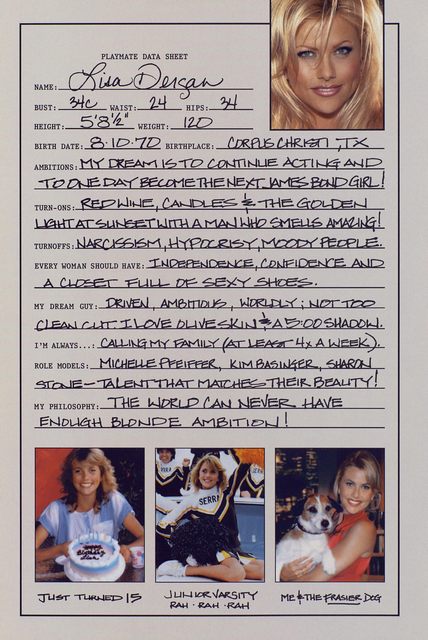 PLAYMATE DATA SHEET
NAME: Lisa Dergan
BUST: 34C WAIST: 24 HIPS: 34
HEIGHT: 5'8½" WEIGHT: 120
BIRTH DATE: 8·10·70 BIRTHPLACE: CORPUS CHRISTI, TX
AMBITIONS: MY DREAM IS TO CONTINUE ACTING AND
TO ONE DAY BECOME THE NEXT JAMES BOND GIRL!
TURN-ONS: RED WINE, CANDLES & THE GOLDEN
LIGHT AT SUNSET WITH A MAN WHO SMELLS AMAZING!
TURNOFFS: NARCISSISM, HYPOCRISY, MOODY PEOPLE.
EVERY WOMAN SHOULD HAVE: INDEPENDENCE, CONFIDENCE AND
A CLOSET FULL OF SEXY SHOES.
MY DREAM GUY: DRIVEN, AMBITIOUS, WORLDLY; NOT TOO
CLEAN CUT. I LOVE OLIVE SKIN & A 5:00 SHADOW.
I'M ALWAYS...: CALLING MY FAMILY (AT LEAST 4x A WEEK).
ROLE MODELS: MICHELLE PFEIFFER, KIM BASINGER, SHARON
STONE—TALENT THAT MATCHES THEIR BEAUTY!
MY PHILOSOPHY: THE WORLD CAN NEVER HAVE
ENOUGH BLONDE AMBITION!
Happy
Birthday
Lisa
SERRA
JUST TURNED 15
JUNIOR VARSITY
RAH·RAH·RAH
ME & THE FRASIER DOG